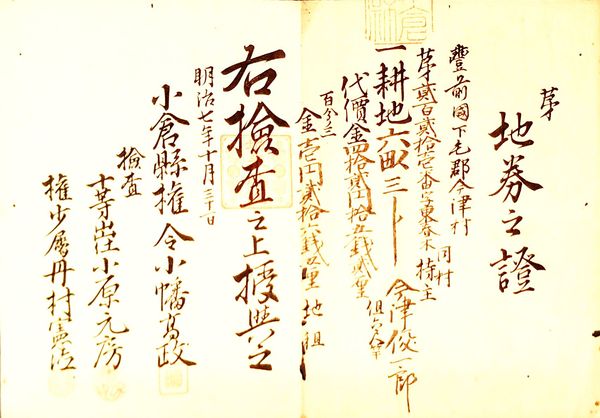 第
地券之證
豊前國下毛郡今津村
第貳百貳拾壱番字東春木 同村 持主
一耕地六畝三 今津俊一郎
代價金四拾貳円拾五銭貳厘
百分三
金壱円貳拾六銭五厘 地租
右撿査之上授與之
明治七年十月三十一日
小倉縣権令小幡高政
撿査
十等出仕小原元房
権少属丹村